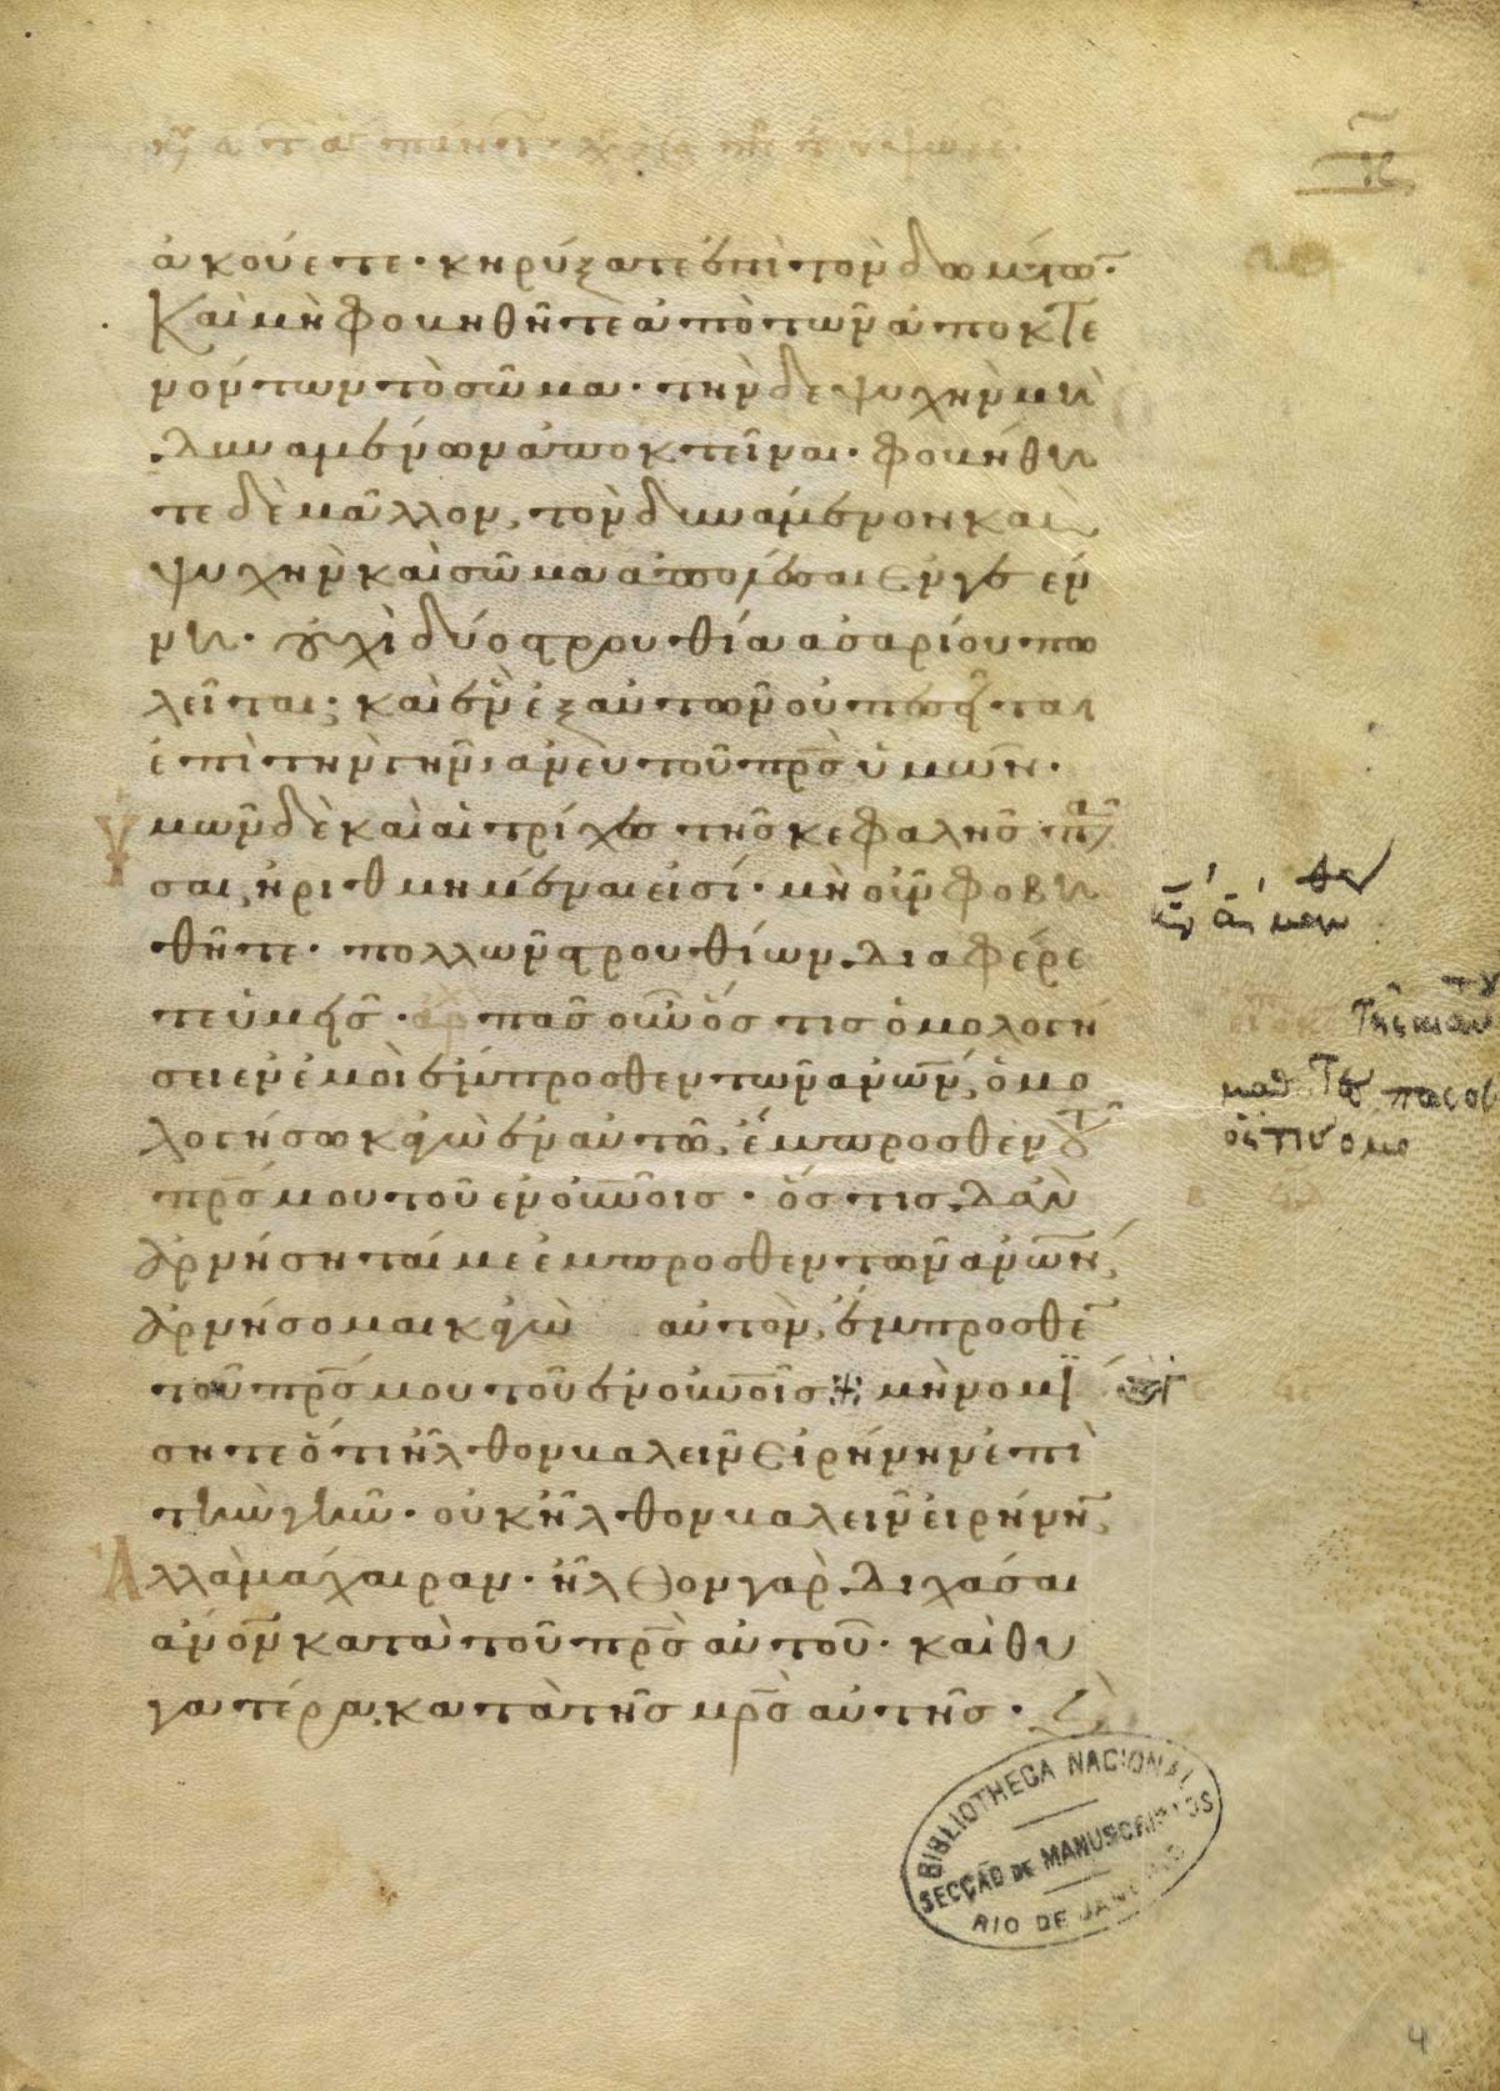 ἀκούετε· κηρύξατε ἐπὶ τὸν δωμάτω̅·
Καὶ μὴ φοβηθῆτε ἀπὸ τῶν ἀποκτε
νόντων τὸ σῶμα· τὴν δὲ ψυχὴν μὴ
δυναμένων ἀποκτεῖναι· φοβήθη
τε δὲ μᾶλλον, τὸν δυνάμενον καὶ
ψυχὴν καὶ σῶμα ἀπολέσαι ἐν γεέν
νη· οὐχὶ δύο στρουθία ἀσαρίου πω
λεῖται; καὶ ἓν ἐξ αὐτῶν οὐ πεσεῖται
ἐπὶ τὴν γῆν, ἄνευ τοῦ πρ̅ς ὑμῶν·
Ὑμῶν δὲ καὶ αἱ τρίχες τῆς κεφαλῆς πᾶ
σαι, ἠριθμημέναι εἰσί· μὴ οὖν φοβη
θῆτε· πολλῶν στρουθίων διαφέρε
τε ὑμεῖς· πᾶς οὖν ὅς τις ὁμολογή
σει ἐν ἐμοὶ ἔμπροσθεν τῶν ἀν̅ων, ὁμο
λογήσω κἀγὼ ἐν αὐτῷ, ἔμπροσθεν τοῦ
πρ̅ς μου τοῦ ἐν οὐν̅οις· ὅς τις δ' ἂν
ἀρνήσηταί με ἔμπροσθεν τῶν ἀν̅ων,
ἀρνήσομαι κἀγὼ αὐτὸν, ἔμπροσθε̅
τοῦ πρ̅ς μου τοῦ ἐν οὐν̅οῖς ⁜ μὴ νομί
σητε ὅτι ἦλθον βαλεῖν εἰρήνην ἐπὶ
τὴν γῆν· οὐκ ἦλθον βαλεῖν εἰρήνη̅,
Ἀλλὰ μάχαιραν· ἦλθον γὰρ διχάσαι
ἄν̅ον κατὰ τοῦ πρ̅ς αὐτοῦ· καὶ θυ
γατέρα κατὰ τῆς μρ̅ς αὐτῆς·
BIBLIOTHECA NACIONAL
SECÇÃO DE MANUSCRIPTOS
RIO DE JANEIRO
4